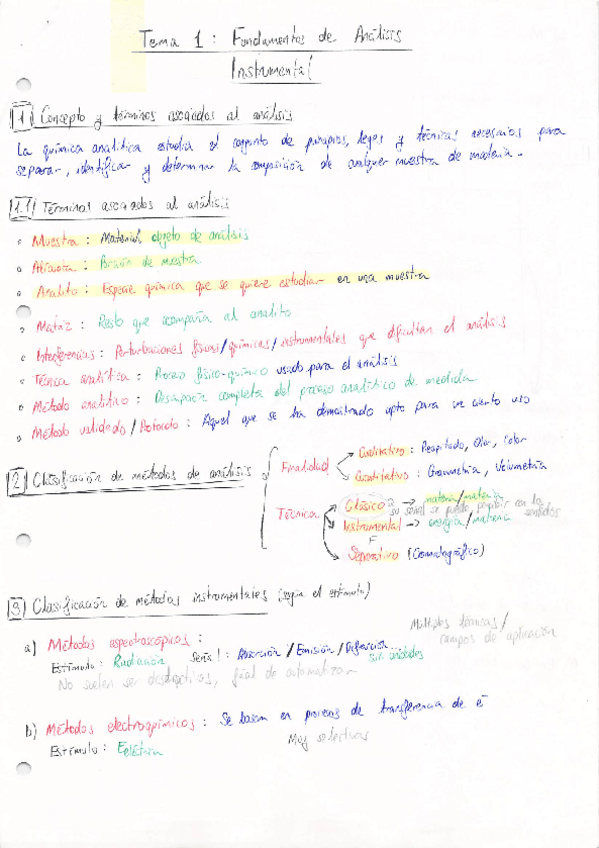 Tema 1: Fundamentos de Análisis
Instrumental
1 Concepto y términos asociados al análisis
La química analítica estudia el conjunto de principios, leyes y técnicas necesarios para
separar, identificar y determinar la composición de cualquier muestra de materia.
1.1 Términos asociados al análisis
• Muestra: Material, objeto de análisis
• Alícuota: Porción de muestra
• Analito: Especie química que se quiere estudiar en una muestra
• Matriz: Resto que acompaña al analito
• Interferencias: Perturbaciones físicas/químicas/instrumentales que dificultan el análisis
• Técnica analítica: Proceso físico-químico usado para el análisis
• Método analítico: Descripción completa del proceso analítico de medida
• Método validado/Protocolo: Aquel que se ha demostrado apto para un cierto uso
2 Clasificación de métodos de análisis
Finalidad
Cualitativo: Precipitado, Olor, Color
Cuantitativo: Gravimetría, Volumetría
Técnica
Clásico → materia/materia
su señal se puede percibir con los sentidos
Instrumental → energía/materia
Separativo (Cromatográfico)
3 Clasificación de métodos instrumentales (según el estímulo)
Múltiples técnicas/
campos de aplicación
a) Métodos espectroscópicos:
Estímulo: Radiación señal: Absorción/Emisión/Difracción...
No suelen ser destructivas, fácil de automatizar
b) Métodos electroquímicos: Se basan en procesos de transferencia de e⁻
Estímulo: Eléctrica
Muy selectivas